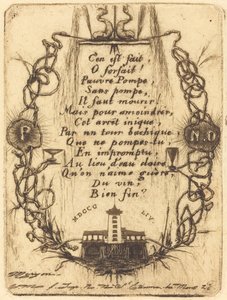 C'en est fait,
O forfait!
Pauvre Pompe,
Sans pompe,
Il faut mourir!
Mais pour amoindrir,
Cet arrêt inique,
Par un tour bachique,
Que ne pompes-tu,
En impromptu,
Au lieu d'eau claire,
Qu'on n'aime guère,
Du vin,
Bien fin?
P
MDCCC LIV.